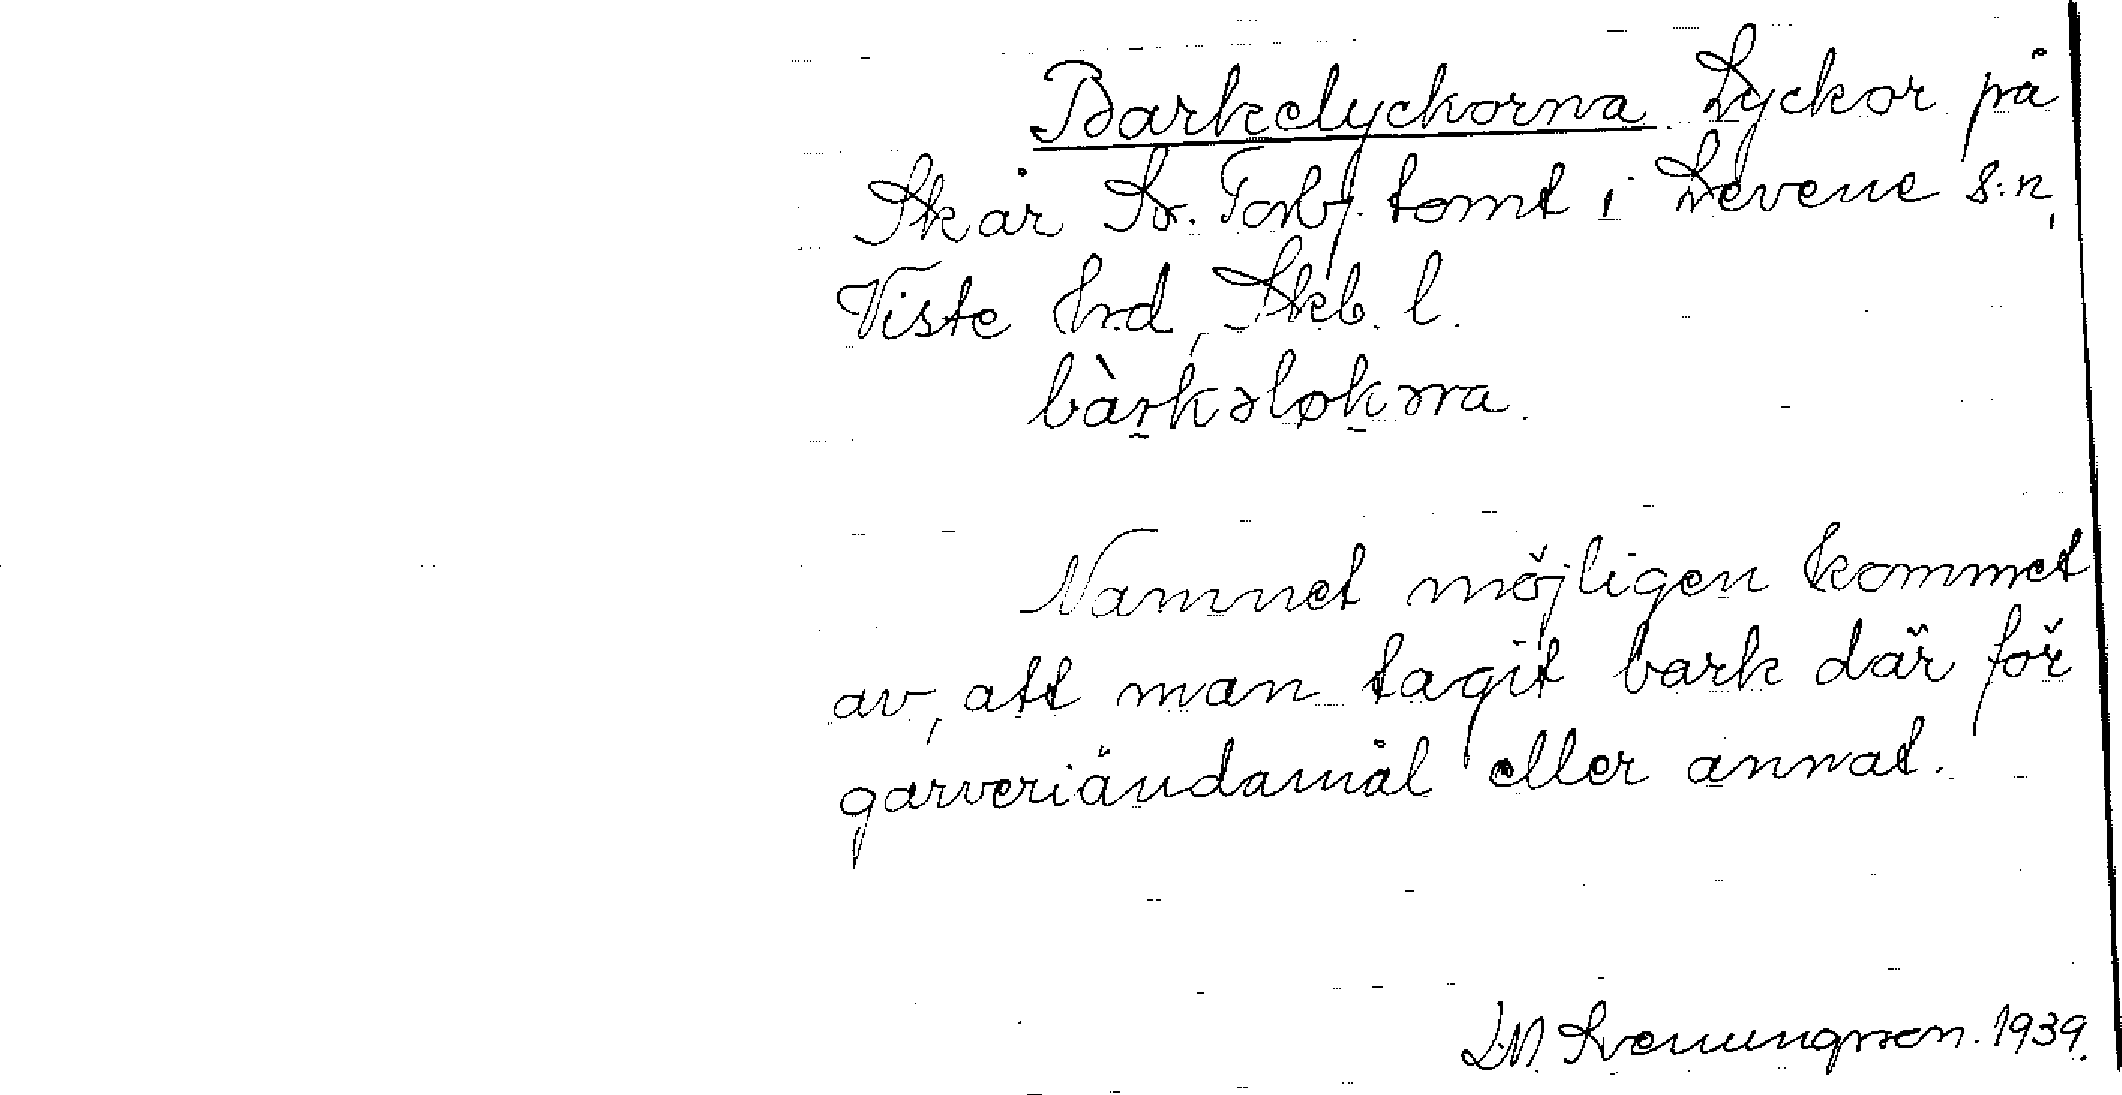 Barkelyckorna. Lyckor på
Skår St. Torbj. tomt i Levene s:n,
Viste hrd, Skb. l.
bàrkəløkərna.
Namnet möjligen kommet
av, att man tagit bark där för
garveriändamål eller annat.
Svenungsson. 1939.